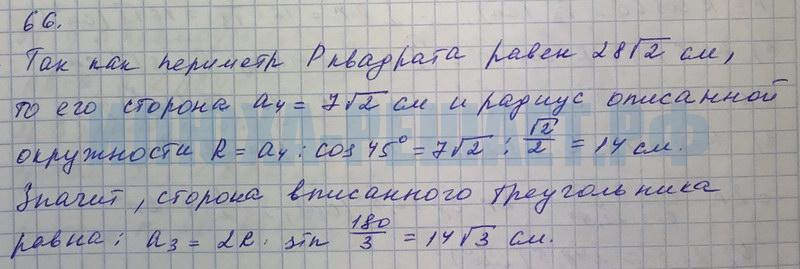 66.
Так как периметр P квадрата равен 28√2 см,
то его сторона a₄ = 7√2 см и радиус описанной
окружности R = a₄ : cos 45° = 7√2 : √2/2 = 14 см.
Значит, сторона вписанного треугольника
равна: a₃ = 2R · sin 180/3 = 14√3 см.